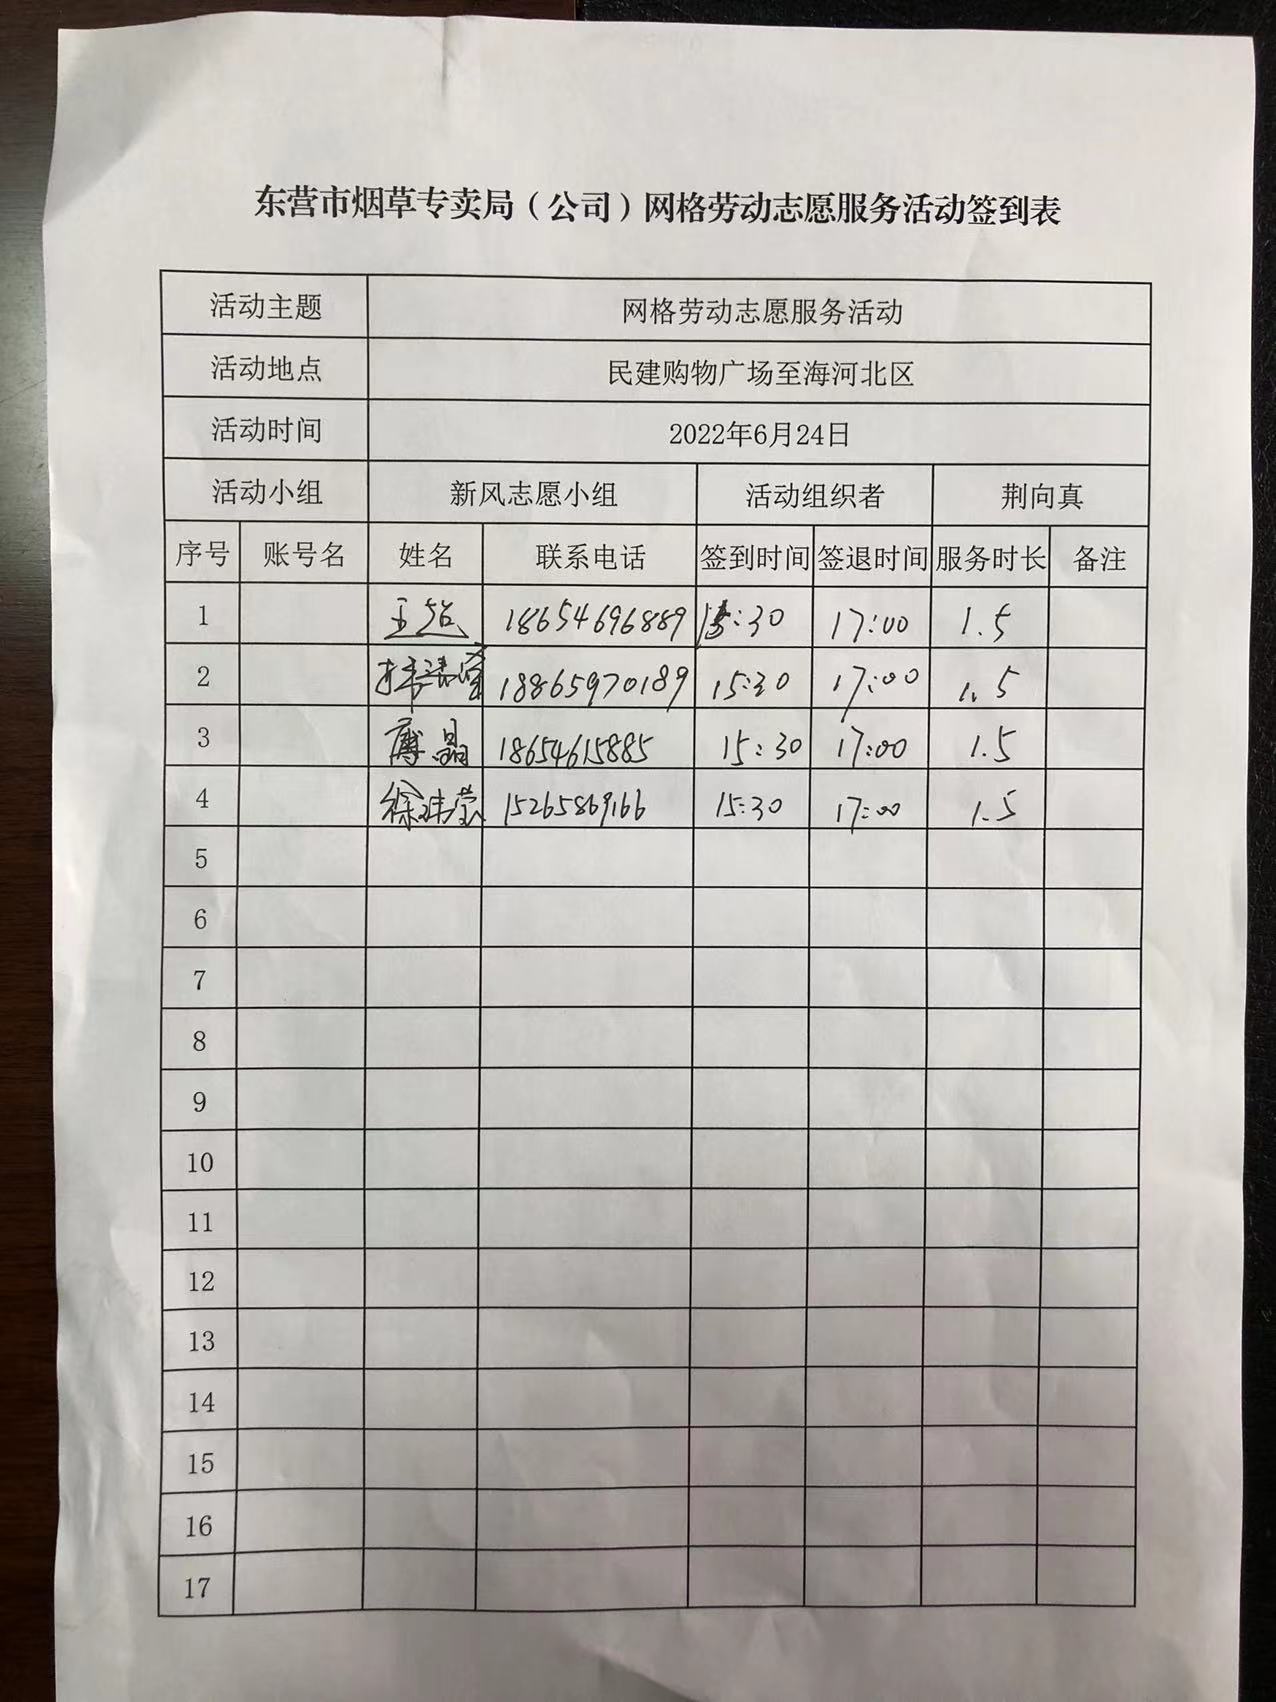 东营市烟草专卖局（公司）网格劳动志愿服务活动签到表
活动主题 网格劳动志愿服务活动
活动地点 民建购物广场至海河北区
活动时间 2022年6月24日
活动小组 新风志愿小组 活动组织者 荆向真
序号 账号名 姓名 联系电话 签到时间 签退时间 服务时长 备注
1 王 18654696889 15:30 17:00 1.5
2 18865970189 15:30 17:00 1.5
3 晶 18654615885 15:30 17:00 1.5
4 徐玮莹 15265869166 15:30 17:00 1.5
5
6
7
8
9
10
11
12
13
14
15
16
17